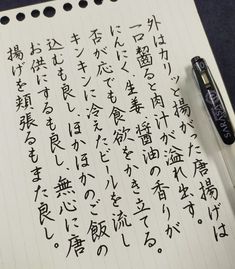 外はカリーッと揚がった唐揚げは
一口齧ると肉汁が溢れ出す。
にんにく、生姜、醤油の香りが
否が応でも食欲をかき立てる。
キンキンに冷えたビールを流し
込むも良し、ほかほかのご飯の
お供にするも良し、無心に唐
揚げを頬張るもまた良し。
SARASA